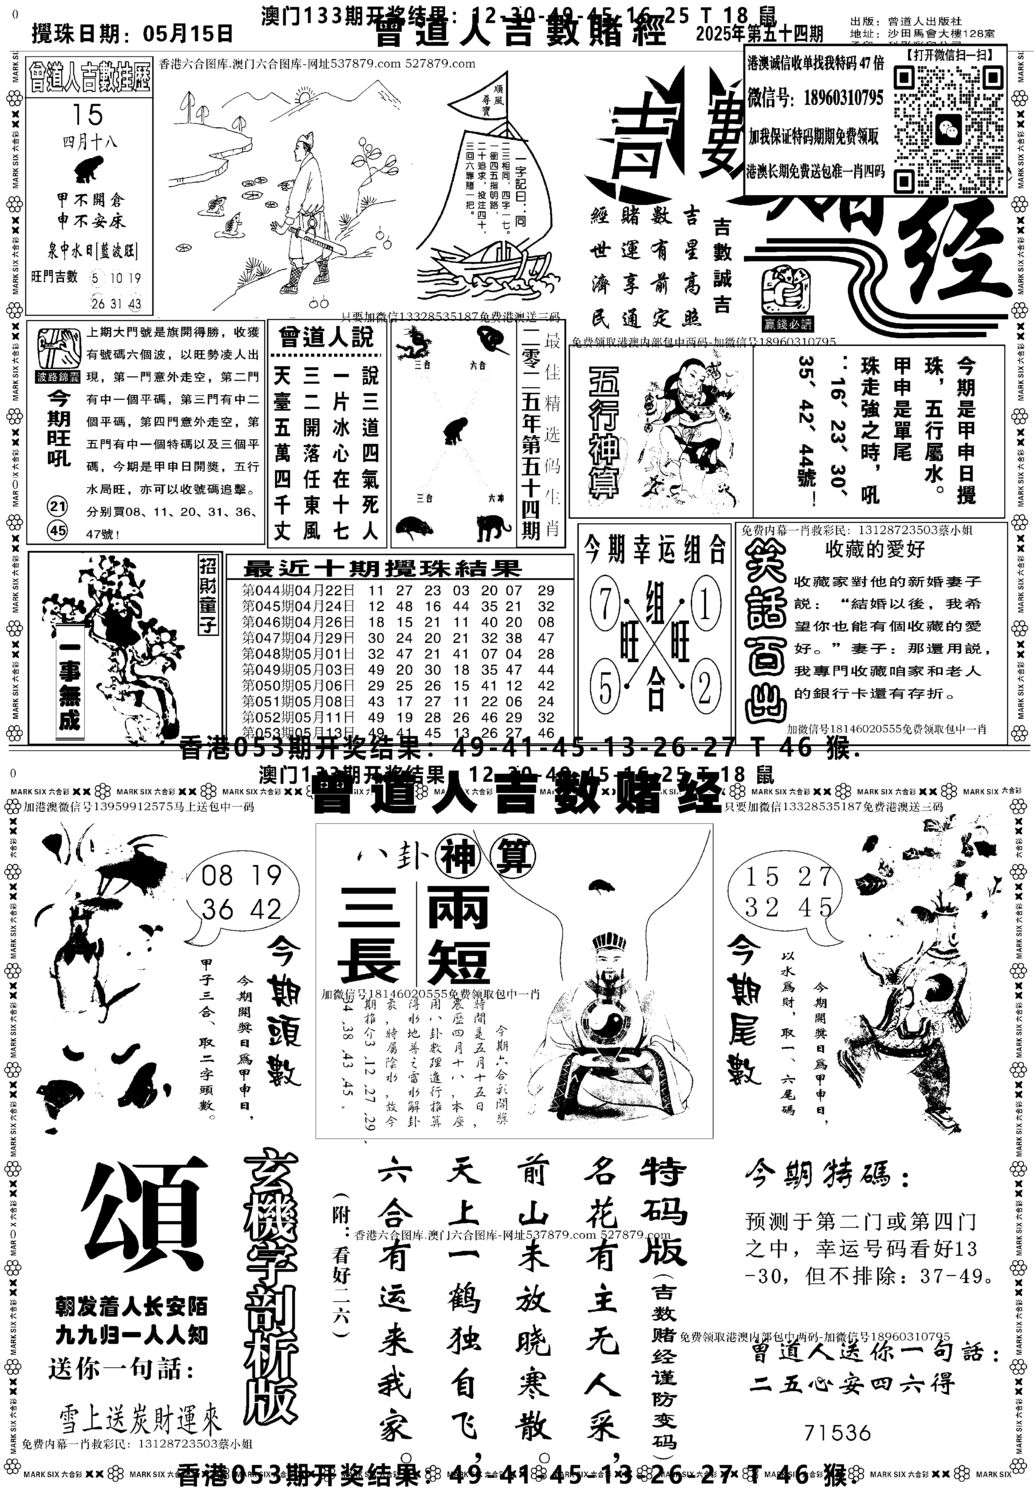 攪珠日期：05月15日
澳门133期开奖结果：12-30-49-45-16-25 T 18 鼠
曾道人吉數賭經
2025年第五十四期
出版：曾道人出版社
地址：沙田馬會大樓128室
香港六合图库.澳门六合图库-网址537879.com 527879.com
曾道人吉數挂歷
15
四月十八
甲不開倉
申不安床
泉中水日[藍波旺]
旺門吉數 5 10 19
26 31 43
順風
尋寶
一字記曰：同
二三相同，四字一七。
一衝四五指明路，
二十追求，投注四十，
三回六靠賭一把。
吉數
賭經
港澳诚信收单找我特码47倍
微信号：18960310795
加我保证特码期期免费领取
港澳长期免费送包准一肖四码
【打开微信扫一扫】
吉數誠吉
吉星高照
數有前定
賭運享通
經世濟民
贏錢必讀
只要加微信13328535187免费港澳送三码
免费领取港澳内部包中两码-加微信号18960310795
波路錦囊
今期旺吼
21
45
上期大門號是旗開得勝，收獲
有號碼六個波，以旺勢凌人出
現，第一門意外走空，第二門
有中一個平碼，第三門有中二
個平碼，第四門意外走空，第
五門有中一個特碼以及三個平
碼，今期是甲申日開獎，五行
水局旺，亦可以收號碼追擊。
分別買08、11、20、31、36、
47號！
曾道人說
說三道四氣死人
一片冰心在十七
三二開落任東風
天臺五萬四千丈
三台
六合
三台
六冲
最佳精选码生肖
二零二五年第五十四期
五行神算
今期是甲申日攪
珠，五行屬水。
甲申是單尾
珠走強之時，吼
：16、23、30、
35、42、44號！
招財童子
一事無成
最近十期攪珠結果
第044期04月22日 11 27 23 03 20 07 29
第045期04月24日 12 48 16 44 35 21 32
第046期04月26日 18 15 21 11 40 20 08
第047期04月29日 30 24 20 21 32 38 47
第048期05月01日 32 47 21 41 07 04 28
第049期05月03日 49 20 30 18 35 47 44
第050期05月06日 29 25 26 15 41 12 42
第051期05月08日 43 17 27 11 22 06 24
第052期05月11日 49 19 28 26 46 29 32
第053期05月13日 49 41 45 13 26 27 46
今期幸运组合
7 组 1
旺 旺
5 合 2
免费内幕一肖救彩民：13128723503蔡小姐
笑話百出
收藏的愛好
收藏家對他的新婚妻子
説：“結婚以後，我希
望你也能有個收藏的愛
好。”妻子：那還用説，
我專門收藏咱家和老人
的銀行卡還有存折。
加微信号18146020555免费领取包中一肖
香港053期开奖结果：49-41-45-13-26-27 T 46 猴.
澳门133期开奖结果：12-30-49-45-16-25 T 18 鼠
曾道人吉数赌经
加港澳微信号13959912575马上送包中一码
只要加微信13328535187免费港澳送三码
08 19
36 42
今期頭數
今期開獎日爲甲申日，
甲子三合、取二字頭數。
八卦神算
三長
兩短
加微信号18146020555免费领取包中一肖
今期六合彩開獎
時間是五月十五日，
農歷四月十八，本座
用八卦數理進行推算
得水地尊之雷水解卦
象，特屬陰水，故今
期推介3、12、27、29、
34、38、43、45。
15 27
32 45
今期尾數
今期開獎日爲甲申日，
以水爲財，取一、六尾碼
頌
朝发着人长安陌
九九归一人人知
送你一句話：
雪上送炭財運來
免费内幕一肖救彩民：13128723503蔡小姐
玄機字剖析版
特码版
（吉数赌经谨防变码）
名花有主无人采，
前山未放晓寒散。
天上一鹤独自飞，
六合有运来我家。
（附：看好二六）
香港六合图库.澳门六合图库-网址537879.com 527879.com
今期特碼：
预测于第二门或第四门
之中，幸运号码看好13
-30，但不排除：37-49。
免费领取港澳内部包中两码-加微信号18960310795
曾道人送你一句話：
二五心安四六得
71536
香港053期开奖结果：49-41-45-13-26-27 T 46 猴.